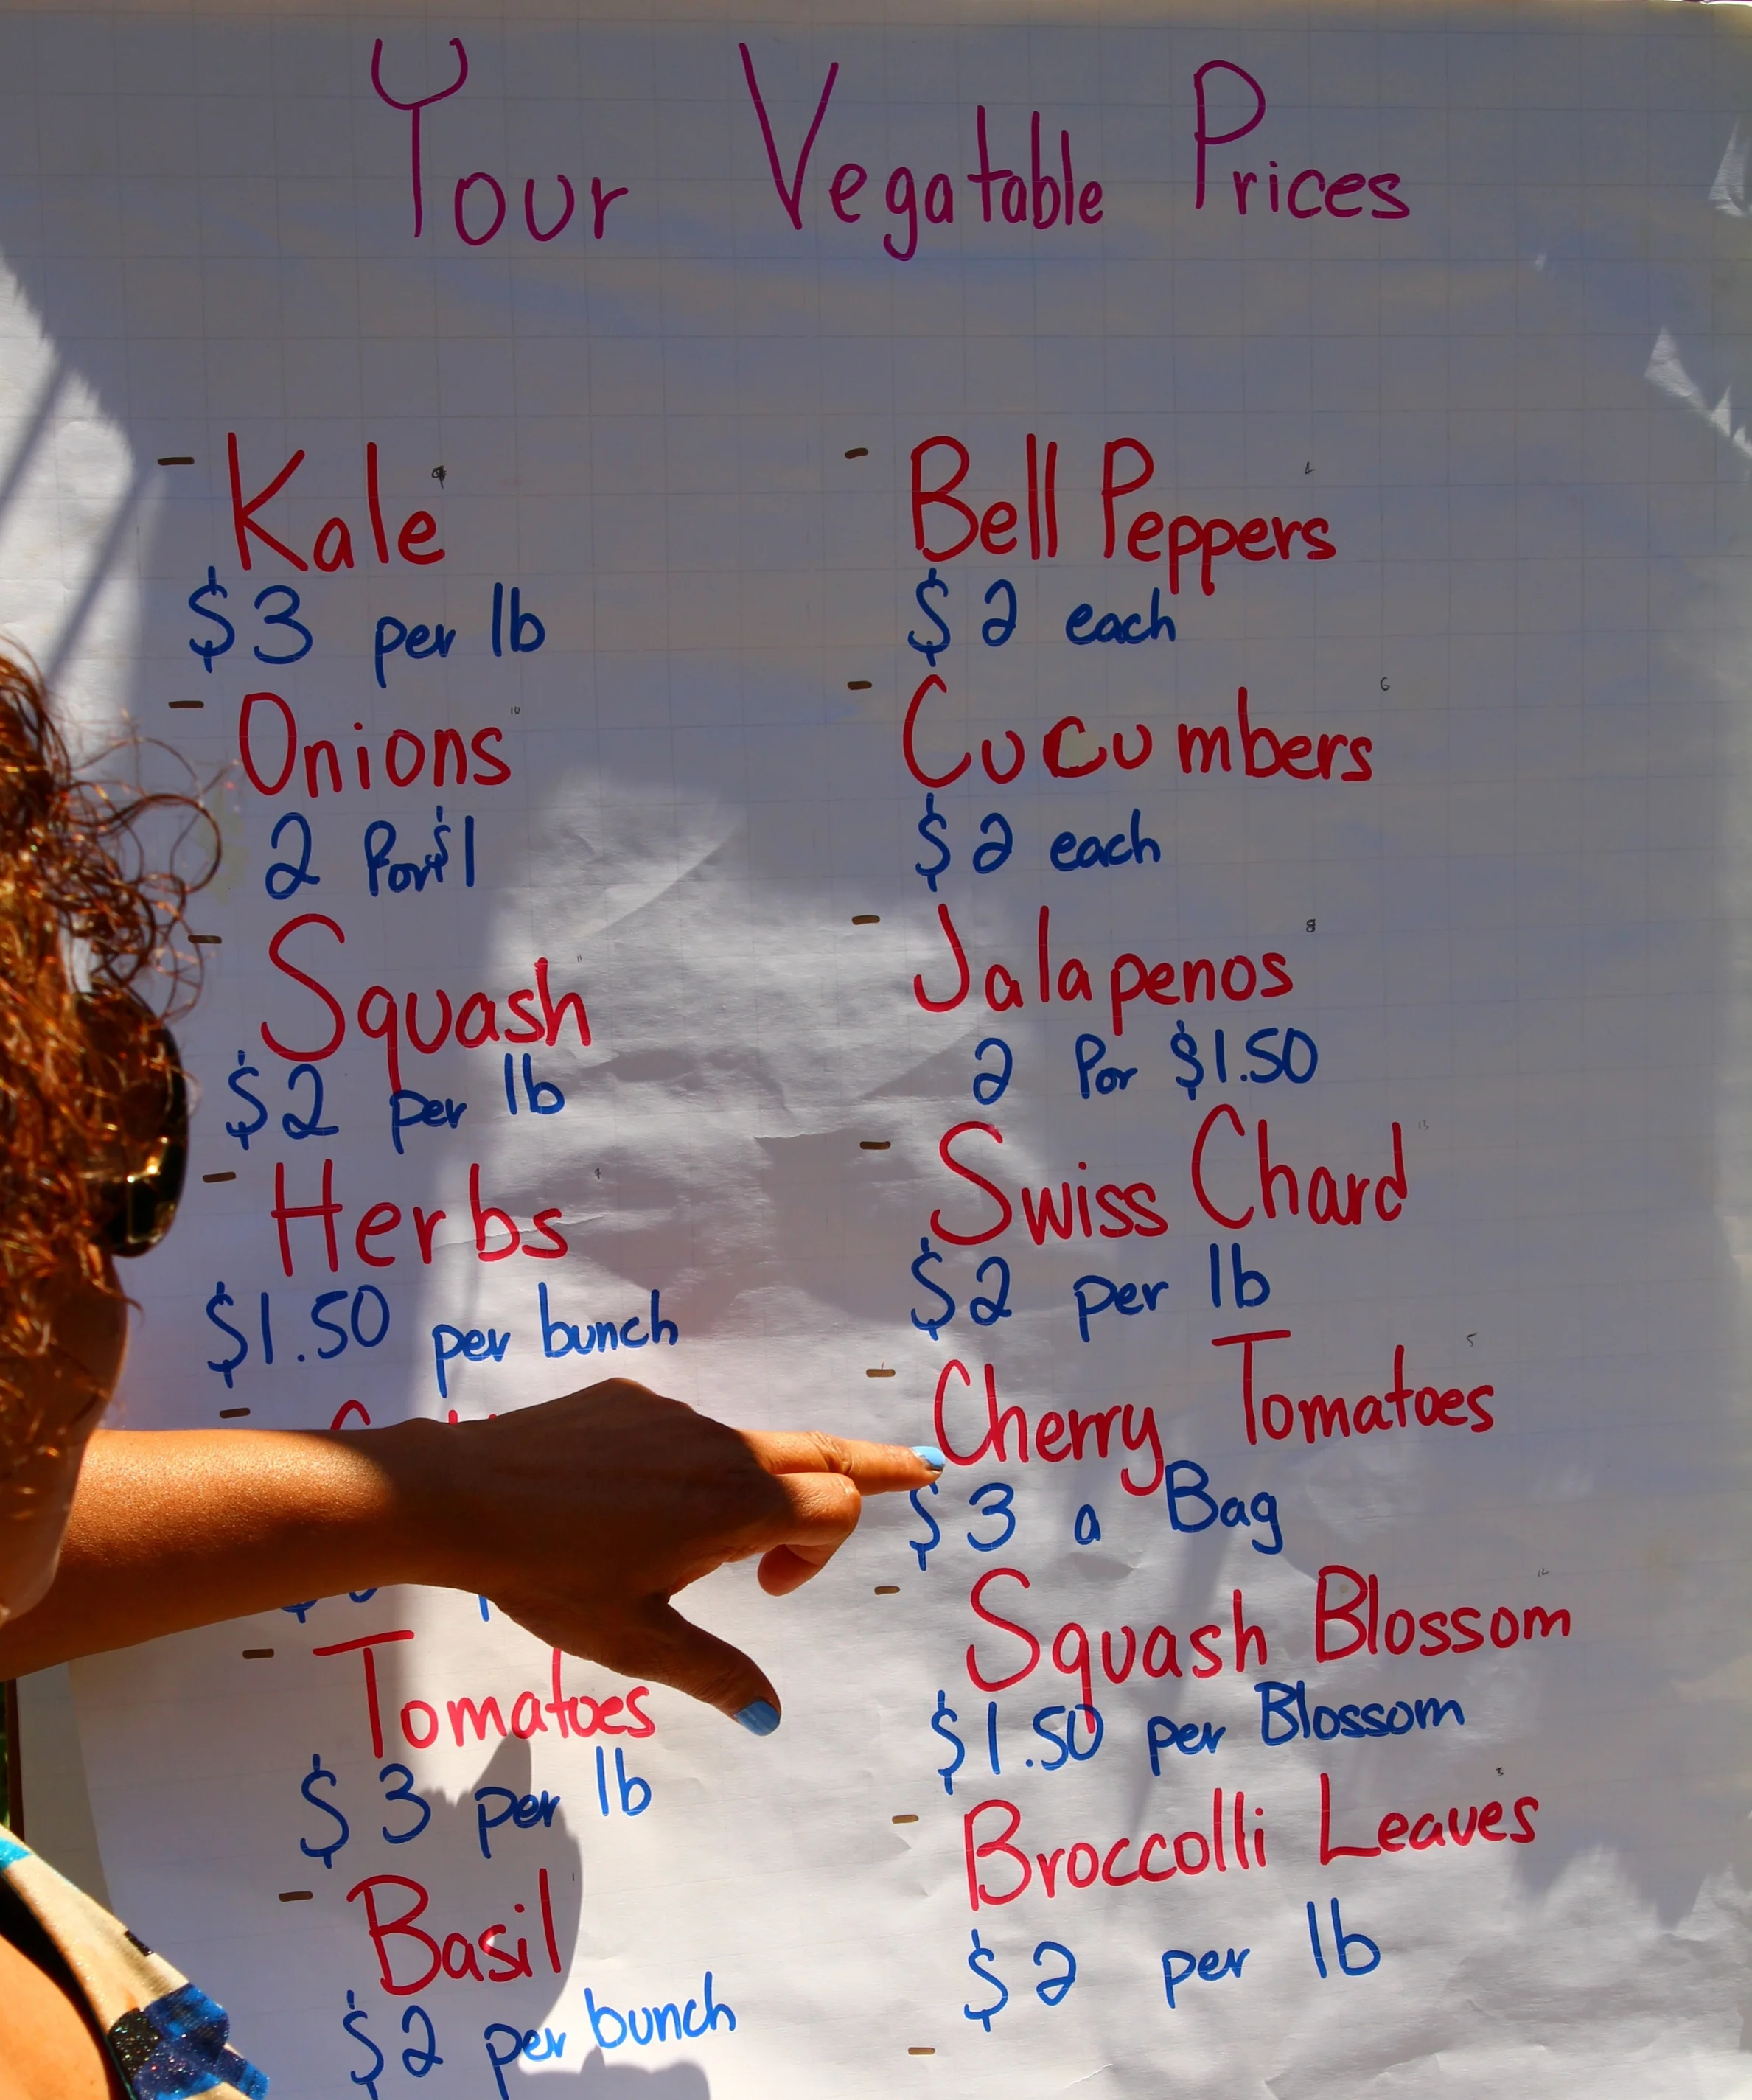 Your Vegatable Prices
- Kale
$3 per lb
- Onions
2 For $1
- Squash
$2 per lb
- Herbs
$1.50 per bunch
-
- Tomatoes
$3 per lb
- Basil
$2 per bunch
- Bell Peppers
$2 each
- Cucumbers
$2 each
- Jalapenos
2 For $1.50
- Swiss Chard
$2 per lb
- Cherry Tomatoes
$3 a Bag
- Squash Blossom
$1.50 per Blossom
- Broccolli Leaves
$2 per lb
-